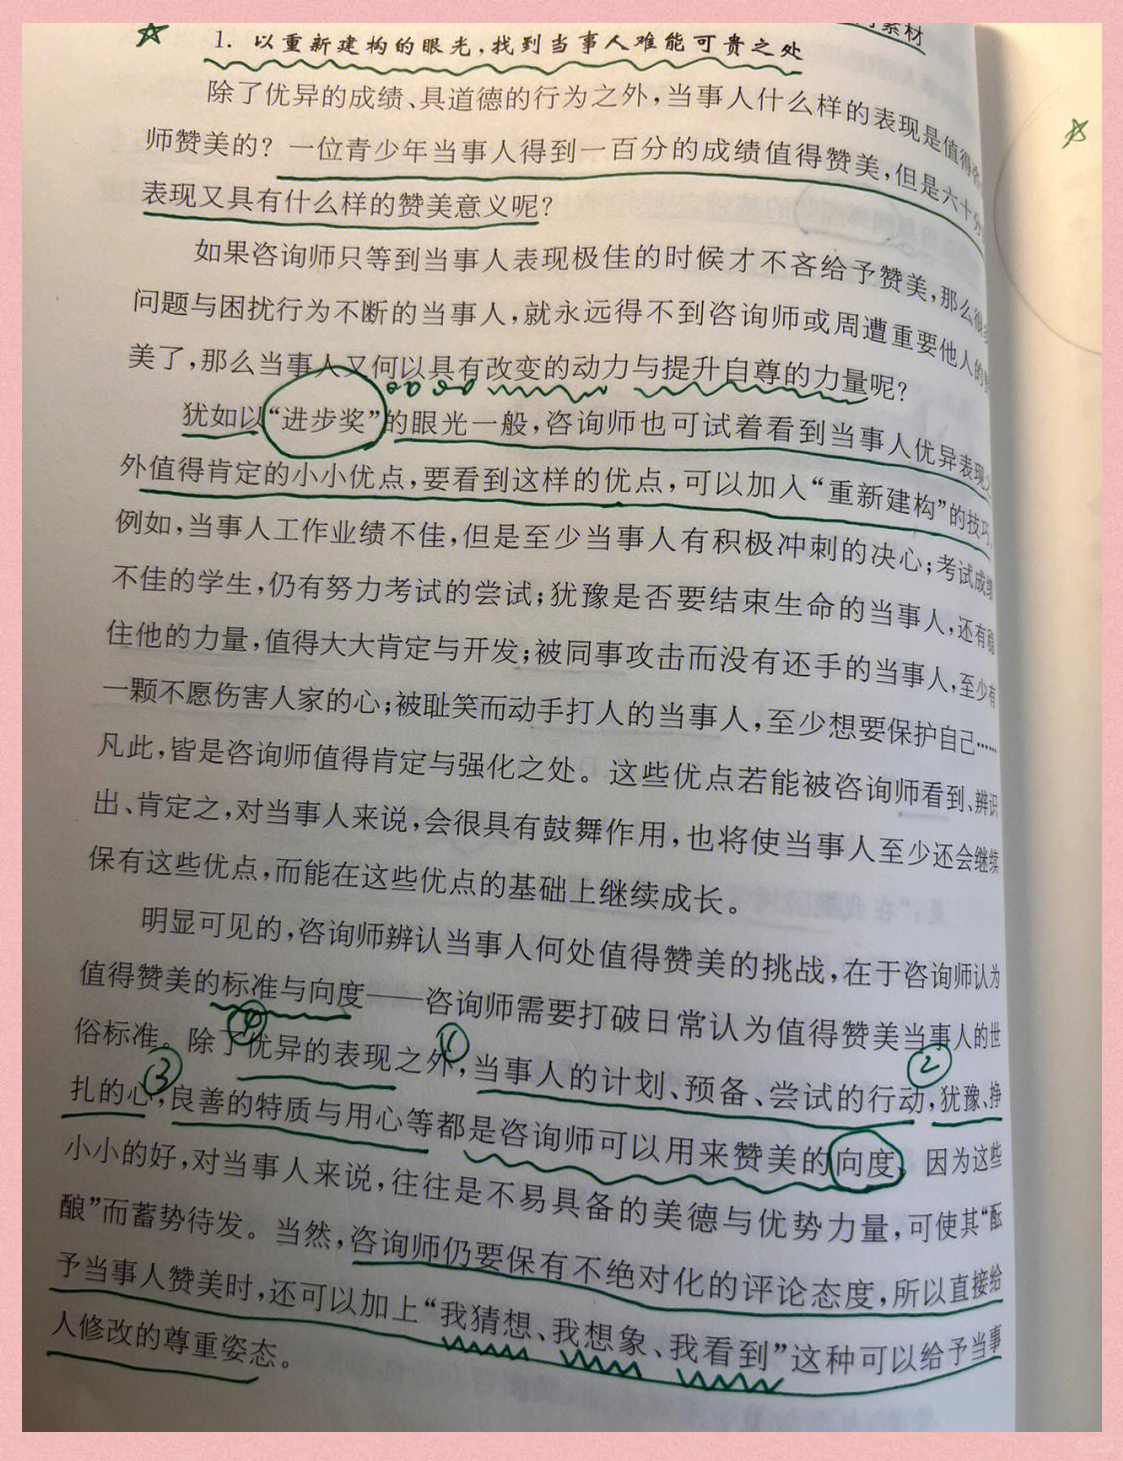 素材
1. 以重新建构的眼光,找到当事人难能可贵之处
除了优异的成绩、具道德的行为之外,当事人什么样的表现是值得咨
师赞美的?一位青少年当事人得到一百分的成绩值得赞美,但是六十分
表现又具有什么样的赞美意义呢?
如果咨询师只等到当事人表现极佳的时候才不吝给予赞美,那么很多
问题与困扰行为不断的当事人,就永远得不到咨询师或周遭重要他人的
美了,那么当事人又何以具有改变的动力与提升自尊的力量呢?
犹如以“进步奖”的眼光一般,咨询师也可试着看到当事人优异表现
外值得肯定的小小优点,要看到这样的优点,可以加入“重新建构”的技巧
例如,当事人工作业绩不佳,但是至少当事人有积极冲刺的决心;考试成绩
不佳的学生,仍有努力考试的尝试;犹豫是否要结束生命的当事人,还有稳
住他的力量,值得大大肯定与开发;被同事攻击而没有还手的当事人,至少有
一颗不愿伤害人家的心;被耻笑而动手打人的当事人,至少想要保护自己……
凡此,皆是咨询师值得肯定与强化之处。这些优点若能被咨询师看到、辨识
出、肯定之,对当事人来说,会很具有鼓舞作用,也将使当事人至少还会继续
保有这些优点,而能在这些优点的基础上继续成长。
明显可见的,咨询师辨认当事人何处值得赞美的挑战,在于咨询师认为
值得赞美的标准与向度——咨询师需要打破日常认为值得赞美当事人的世
④ ① ②
俗标准。除了优异的表现之外,当事人的计划、预备、尝试的行动,犹豫、挣
③
扎的心,良善的特质与用心等都是咨询师可以用来赞美的向度。因为这些
小小的好,对当事人来说,往往是不易具备的美德与优势力量,可使其“酝
酿”而蓄势待发。当然,咨询师仍要保有不绝对化的评论态度,所以直接给
予当事人赞美时,还可以加上“我猜想、我想象、我看到”这种可以给予当事
人修改的尊重姿态。